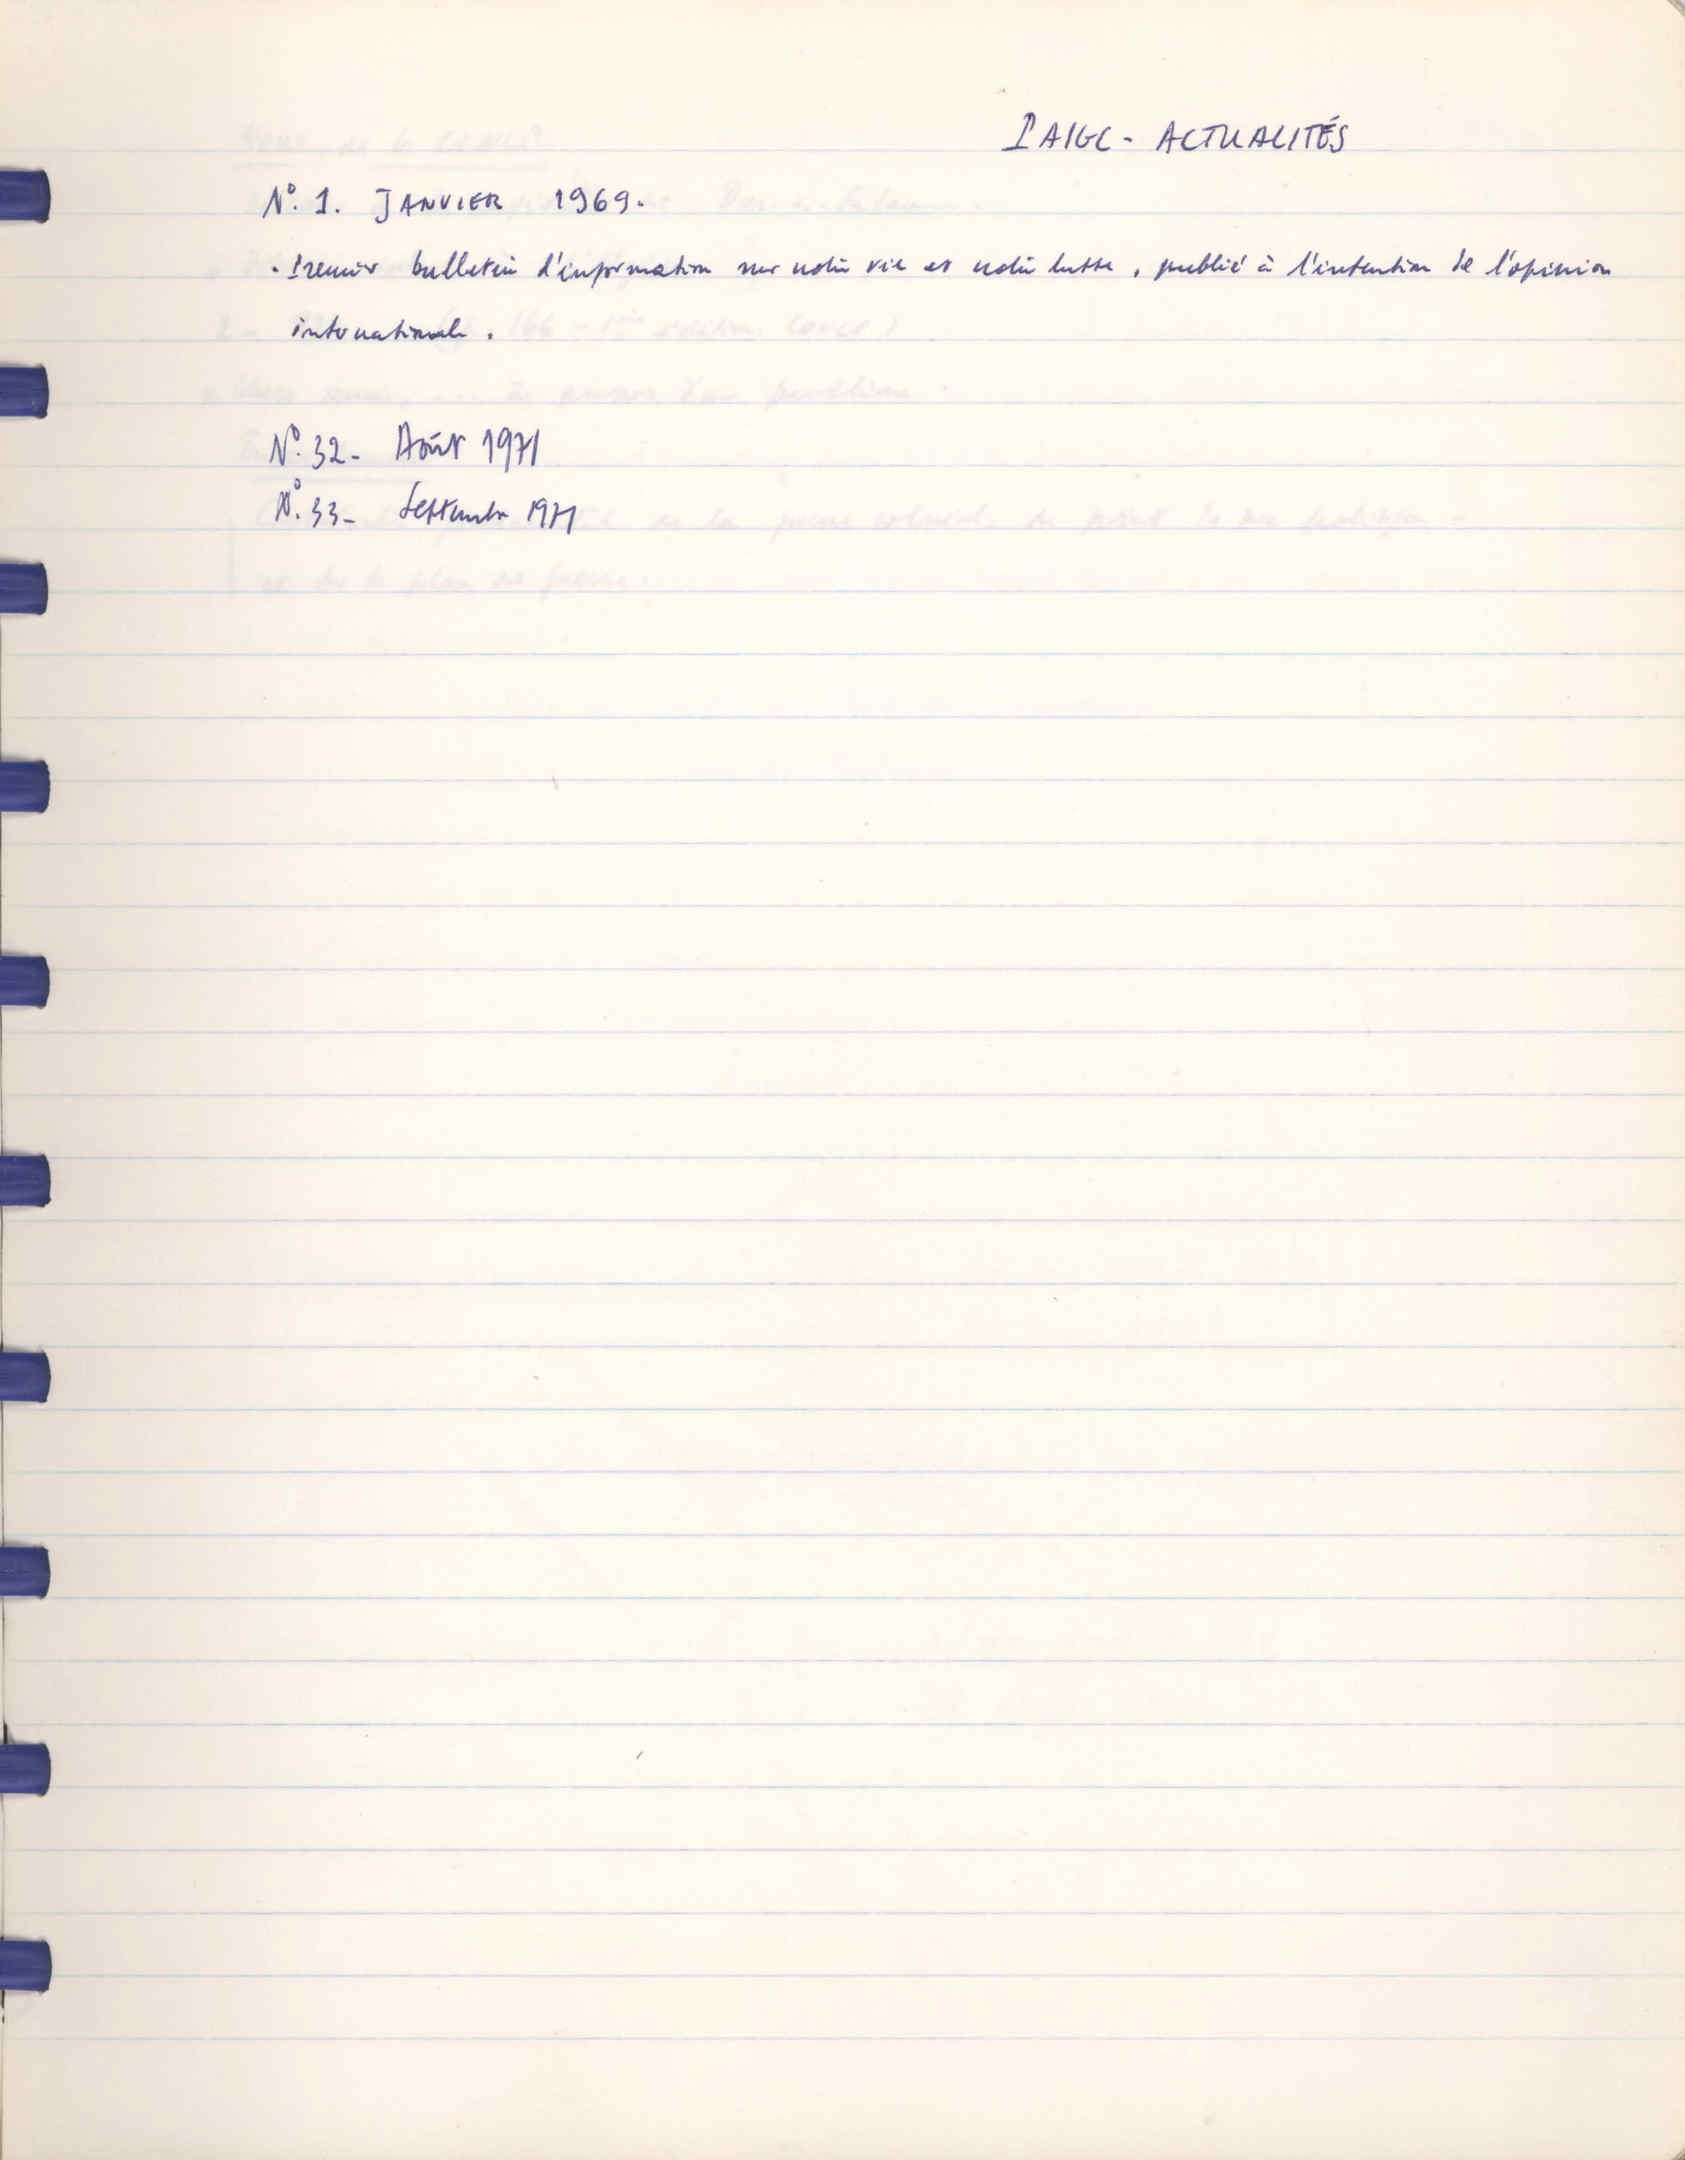 PAIGC - ACTUALITÉS
Nº. 1. JANVIER 1969.
. Premier bulletin d'information sur notre vie et notre lutte, publié à l'intention de l'opinion
internationale.
Nº. 32 - Août 1971
Nº. 33 - Septembre 1971